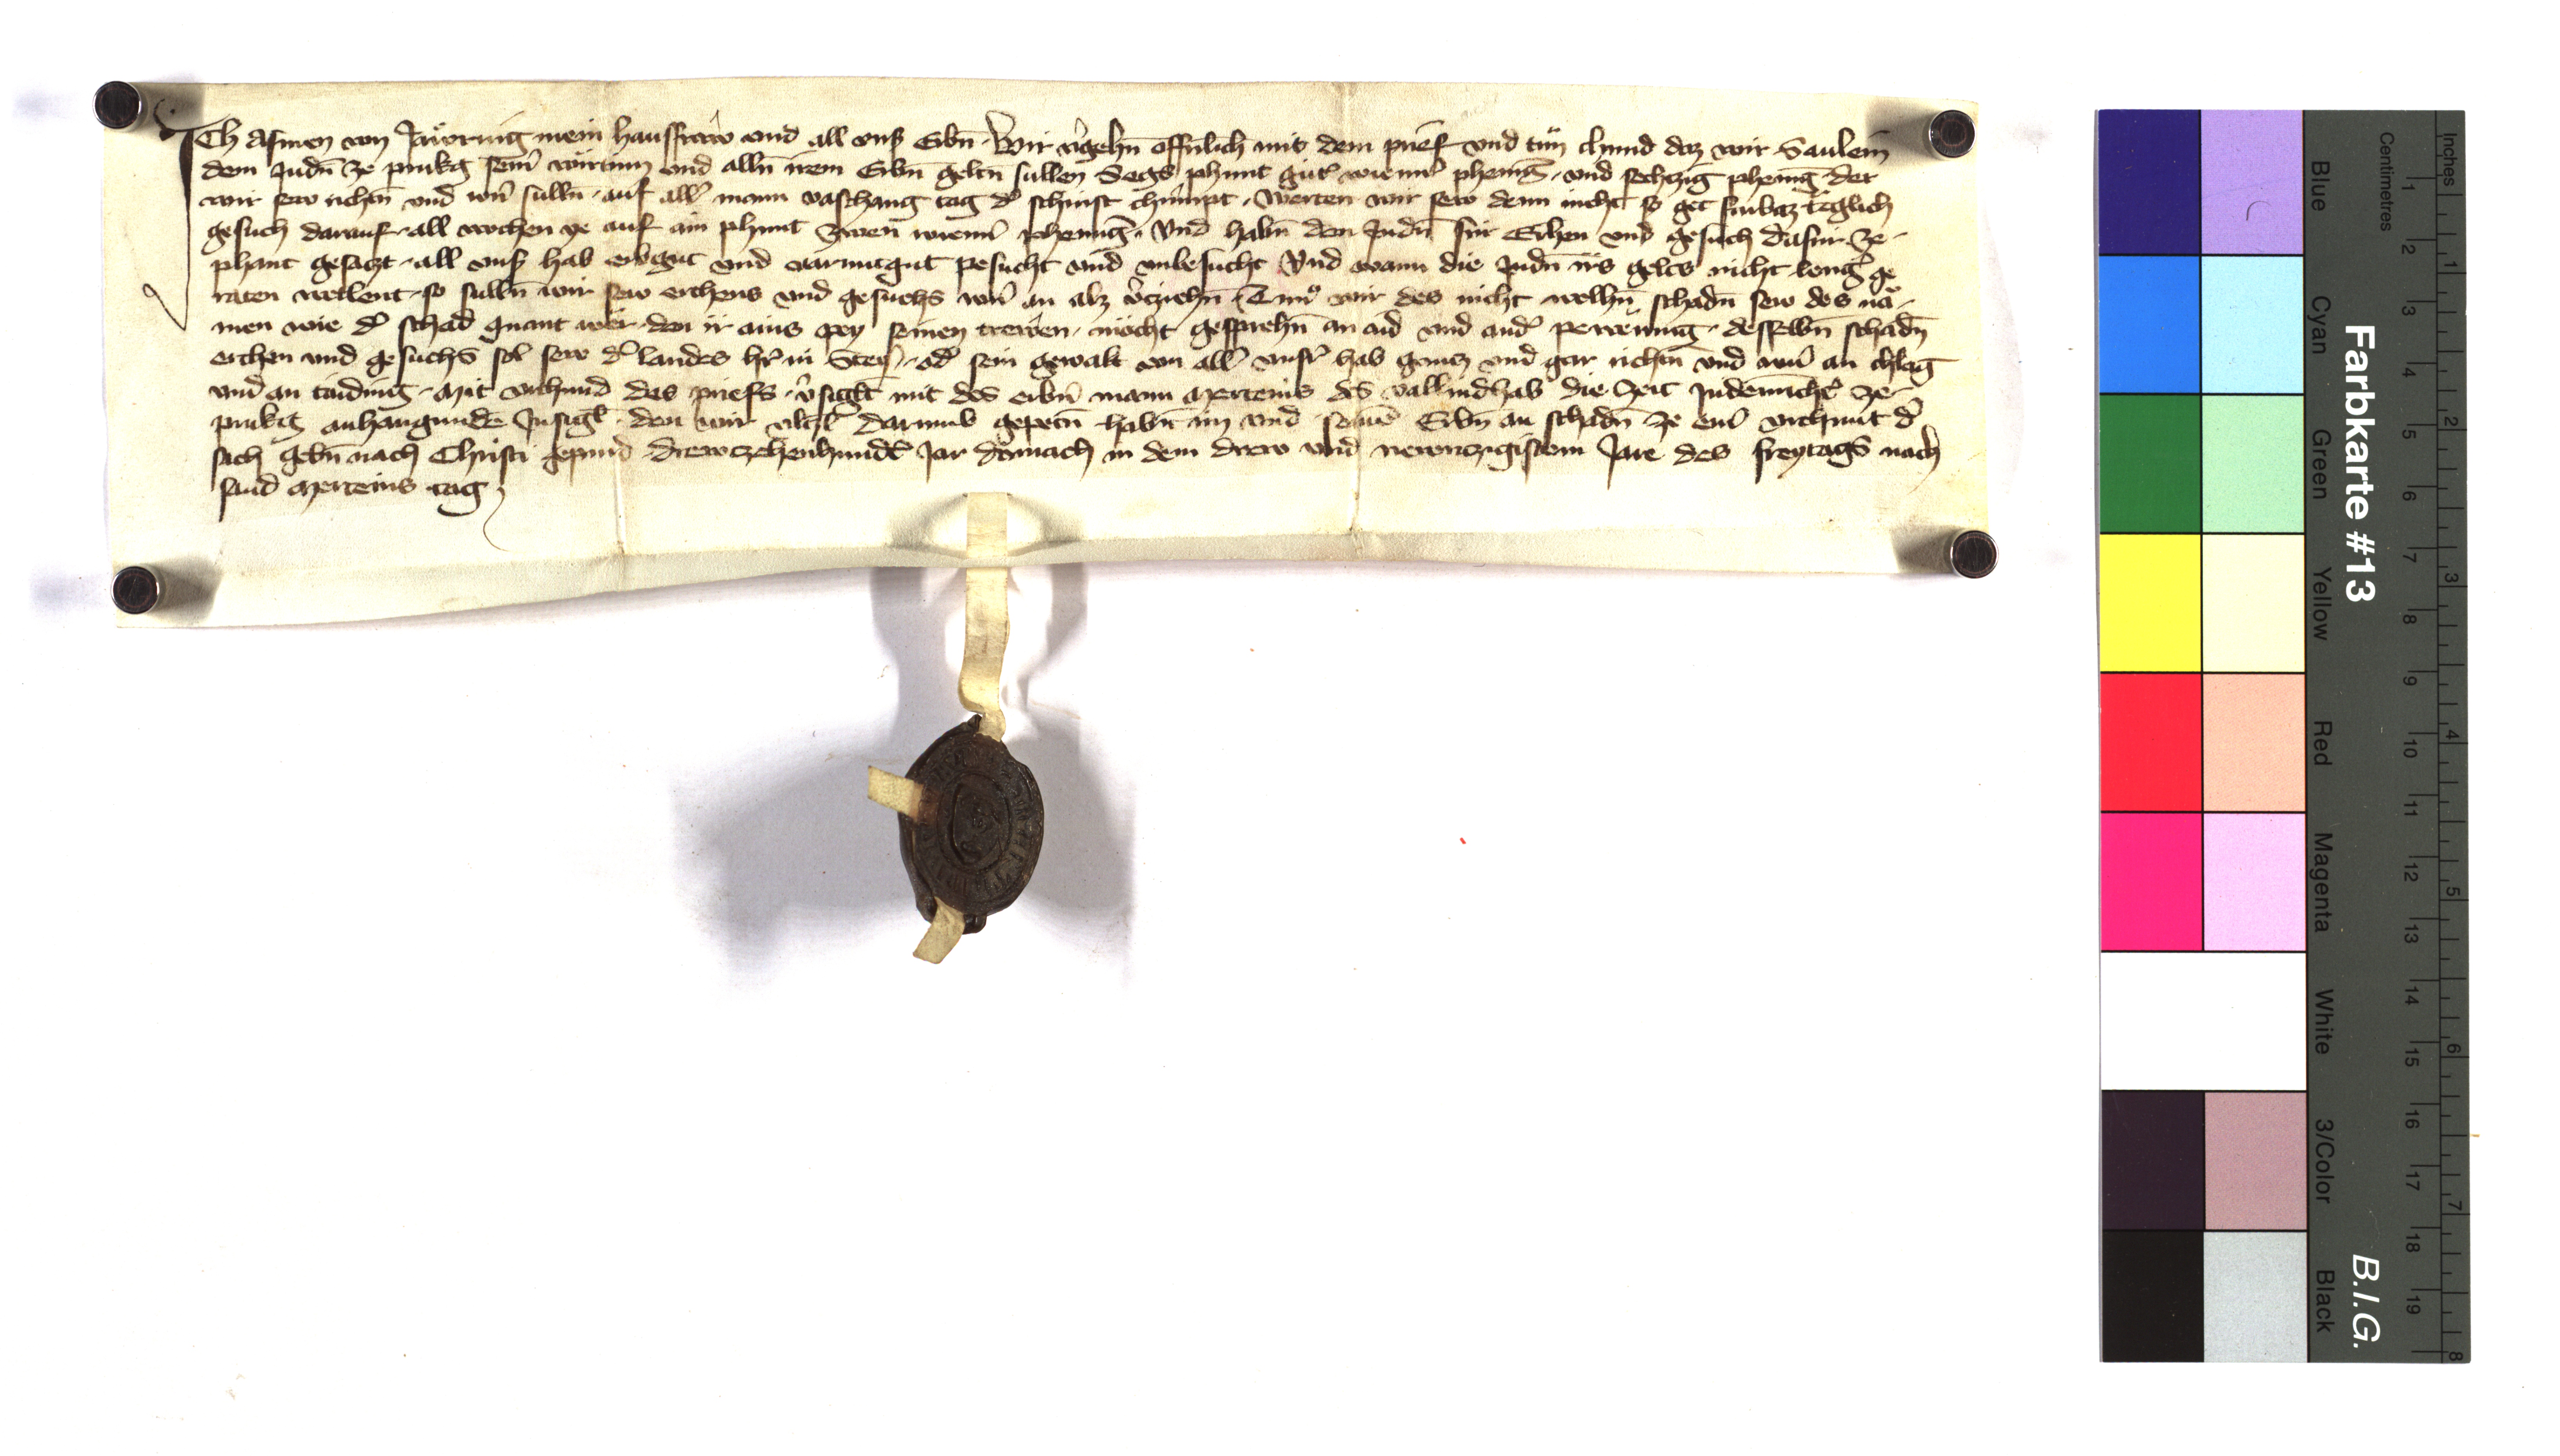 Ich Asmen von Jaͤvornig mein hausfraw vnd all vnsr Erbn̄ · Wir v̓gehn̄ offnlich mit dem prief vnd tuͤn chund daz wir Saulein
dem Judn̄ ze prukg sein̓ wirtinn vnd alln̄ irem Erbn̄ geltn̄ sullen Sechs phunt gut̓ wienn̓ phenīg · vnd sechzig phenīg · der
wir sew richtn̄ vnd wern̄ sulln̄ · auf all̓ mann vaschang tag d̓ schirist chumpt · Werten wir sew denn nicht so get furbaz tëglich
gesuch darauf · all wochen ye auf ain phunt zwen̄ wienn̓ phenniḡ · Vnd habn̄ den Judn̄ fur Erhen vnd gesuch dafur ze
phant gesatzt · all vnsr hab erbgut vnd varnutgut pesucht vnd vnbesucht Vnd wann die Judn̄ irs gelts nicht leng̓ ge
raten wellent · so sulln̄ wir sew erchens vnd gesuchs wern̄ an alz v̓cziehn̄ · Tun̓ wir des nicht · welhn̄ schadn̄ sew des naͤ
men wie d̓ schad genant wër · den ir ains pey seinen trewen · möcht gesprehn̄ an aid vnd and̓ perednung · desselbn̄ schadn̄
erchen vnd gesuchs sol sew d̓ landes hr̓ in Steyr̓ · od̓ sein gewalt von all̓ vnsr̓ hab gantz vnd gar richtn̄ vnd wern̄ an chlag
vnd an taiding · Mit vrchund des priefs · v̓siglt mit des erbn̄ mann Merteins des vallindhab die zeit Judenricht̓ ze
prukg anhangunde Insigl̄ · den wir vleizl̄ darumb gepetn̄ habn̄ im vnd seinē Erbn̄ an schadn̄ ze ein̓ vrchunt d̓
sach gebn̄ nach Christi gepurd drewczehenhund̓t Jar darnach in dem drew vnd newnczigistem Jare des freytags nach
sand Merteins tag
Farbkarte #13
B.I.G.
Centimetres
Inches
Blue
Cyan
Green
Yellow
Red
Magenta
White
3/Color
Black
1 2 3 4 5 6 7 8 9 10 11 12 13 14 15 16 17 18 19
1 2 3 4 5 6 7 8